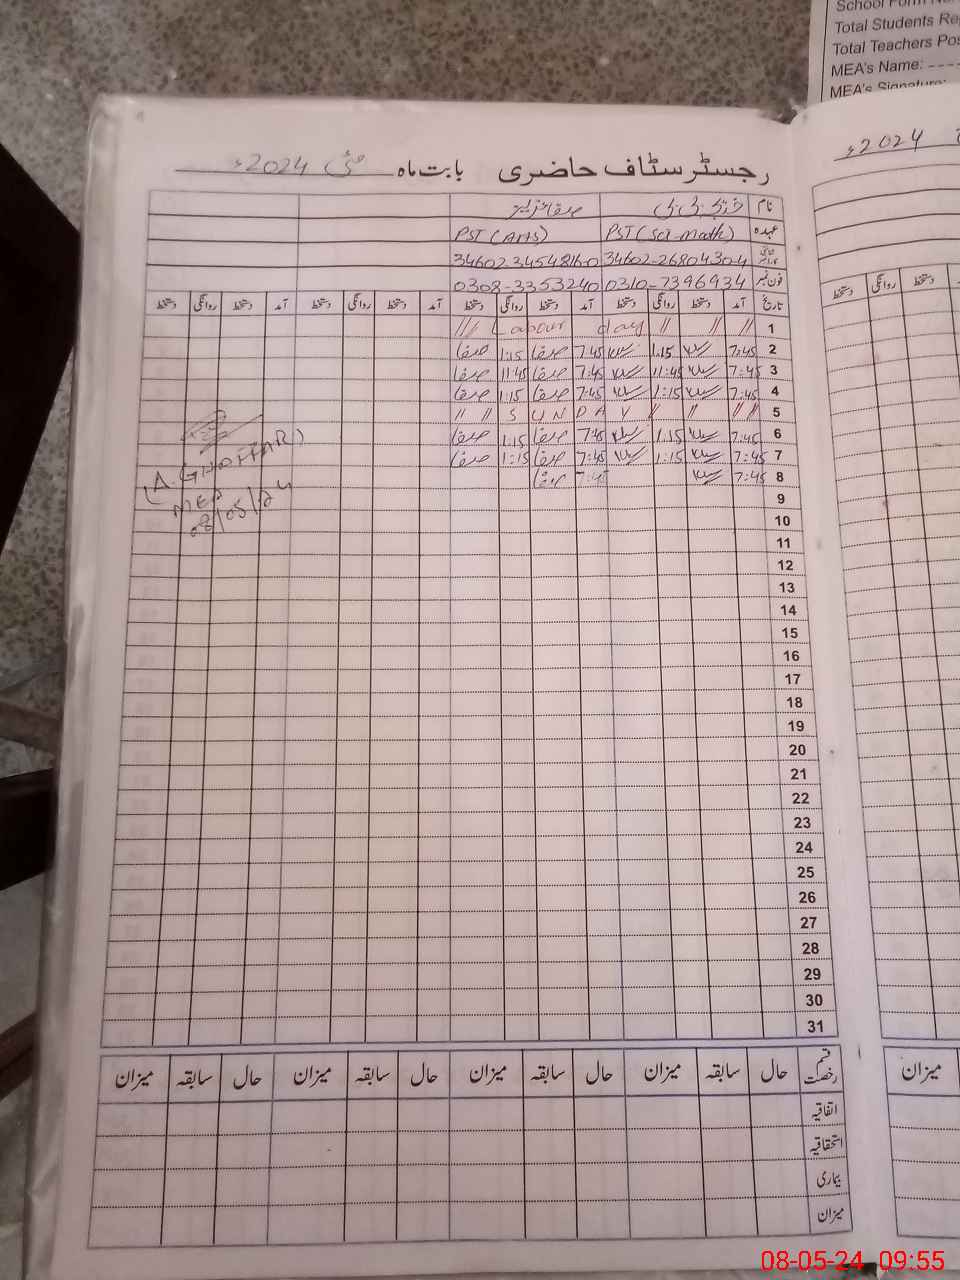 School Form
Total Students Re
Total Teachers Pos
MEA's Name: ----
MEA's Signature:
رجسٹر سٹاف حاضری بابت ماہ مئی 2024ء
2024ء
نام
عہدہ PST (Sci-math) PST (Arts)
34602-2680430-4 34602-3454816-0
فون نمبر 0310-7396934 0308-3353240
تاریخ آمد دستخط روانگی دستخط آمد دستخط روانگی دستخط آمد دستخط روانگی دستخط آمد دستخط روانگی دستخط
دستخط روانگی دستخط
1 // // // Labour day //
2 7:45 1:15 7:45 صدف 1:15 صدف
3 7:45 11:45 7:45 صدف 11:45 صدف
4 7:45 1:15 7:45 صدف 1:15 صدف
5 // // S U N D A Y // // //
6 7:45 1:15 7:45 صدف 1:15 صدف
7 7:45 1:15 7:45 صدف 1:15 صدف
8 7:45 7:45 صدف
(A. GHAFFAR)
MEA
08/05/24
9
10
11
12
13
14
15
16
17
18
19
20
21
22
23
24
25
26
27
28
29
30
31
قسم رخصت حال سابقہ میزان حال سابقہ میزان حال سابقہ میزان حال سابقہ میزان
میزان
اتفاقیہ
استحقاقیہ
بیماری
میزان
08-05-24 09:55